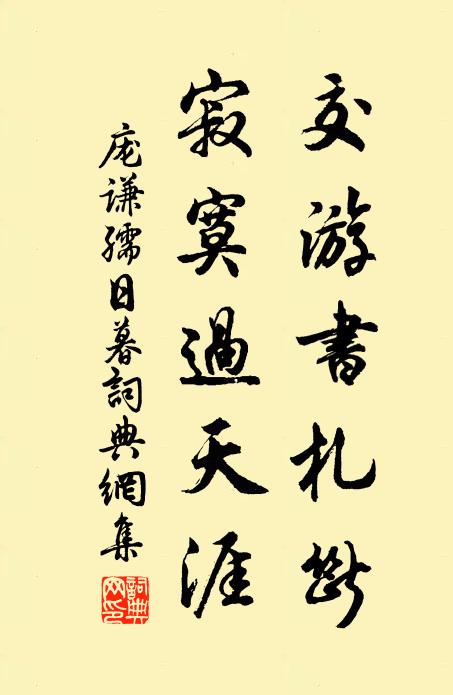 交游書札斷
寂寞過天涯
庞谦孺日暮詞典網集
詞典网印